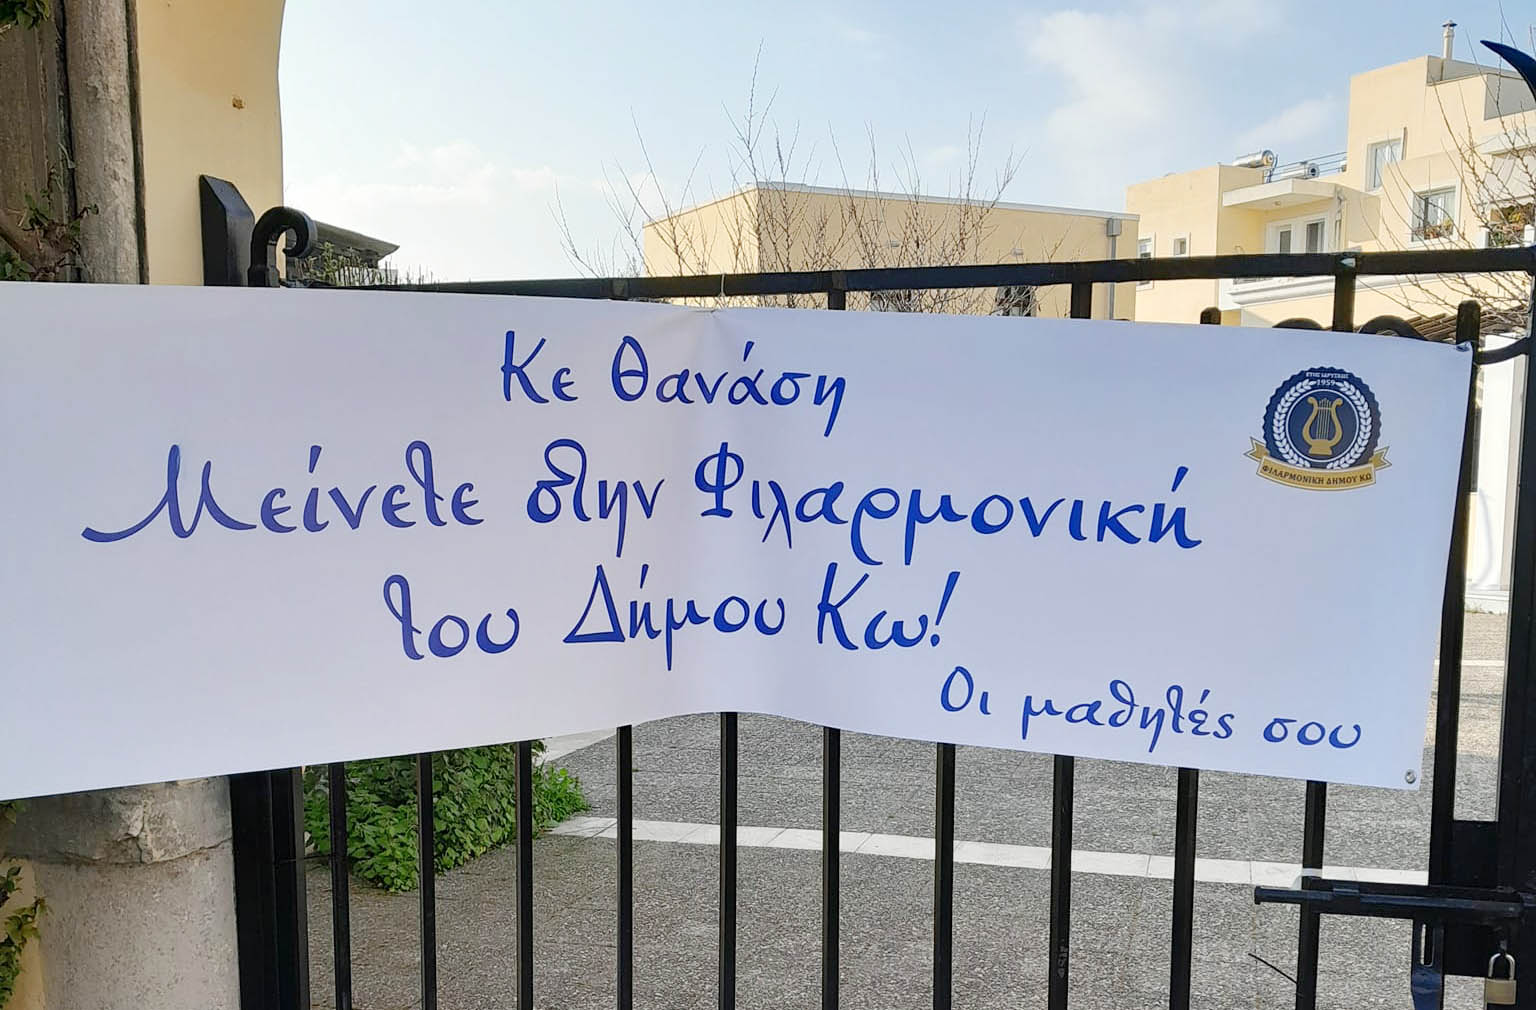 Κε Θανάση
Μείνετε στην Φιλαρμονική
του Δήμου Κω!
Οι μαθητές σου
ΕΤΟΣ ΙΔΡΥΣΕΩΣ
1959
ΦΙΛΑΡΜΟΝΙΚΗ ΔΗΜΟΥ ΚΩ